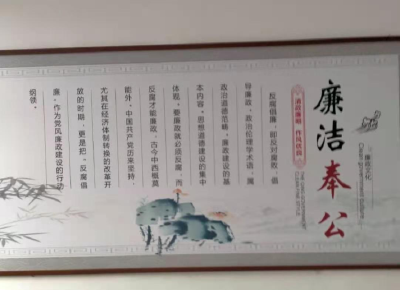 廉洁奉公
廉政文化
清政廉明 作风优良
反腐倡廉，即反对腐败、倡
导廉政，政治伦理学术语，属
政治道德范畴。廉政建设的基
本内容，思想道德建设的集中
体现。要廉政就必须反腐，而
反腐才能廉政，古今中西概莫
能外。中国共产党历来坚持，
尤其在经济体制转换的改革开
放的时期，更是把“反腐倡
廉”作为党风廉政建设的行动
纲领。